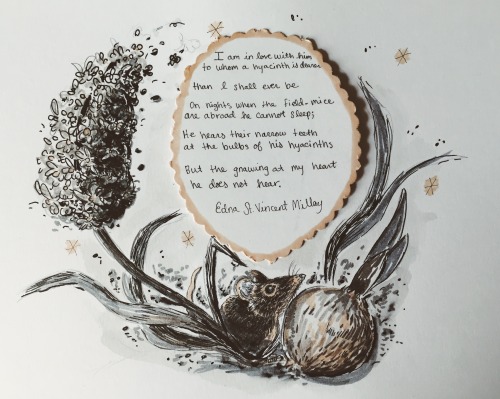 I am in love with him
to whom a hyacinth is dearer
than I shall ever be.
On nights when the field-mice
are abroad he cannot sleep;
He hears their narrow teeth
at the bulbs of his hyacinths
But the gnawing at my heart
he does not hear.
Edna St. Vincent Millay